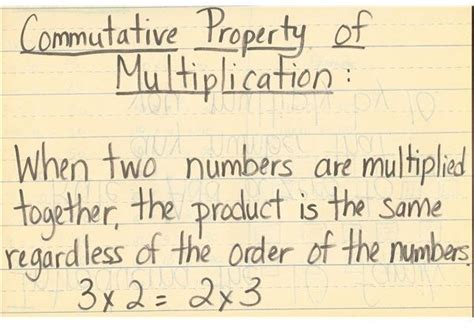 Commutative Property of
Multiplication:
When two numbers are multiplied
together, the product is the same
regardless of the order of the numbers.
3 x 2 = 2 x 3